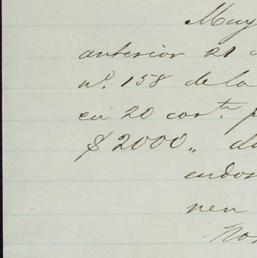 Muy
anterior 21
nº. 158 de la
en 20 corte.
$ 2000 „
endos
ren